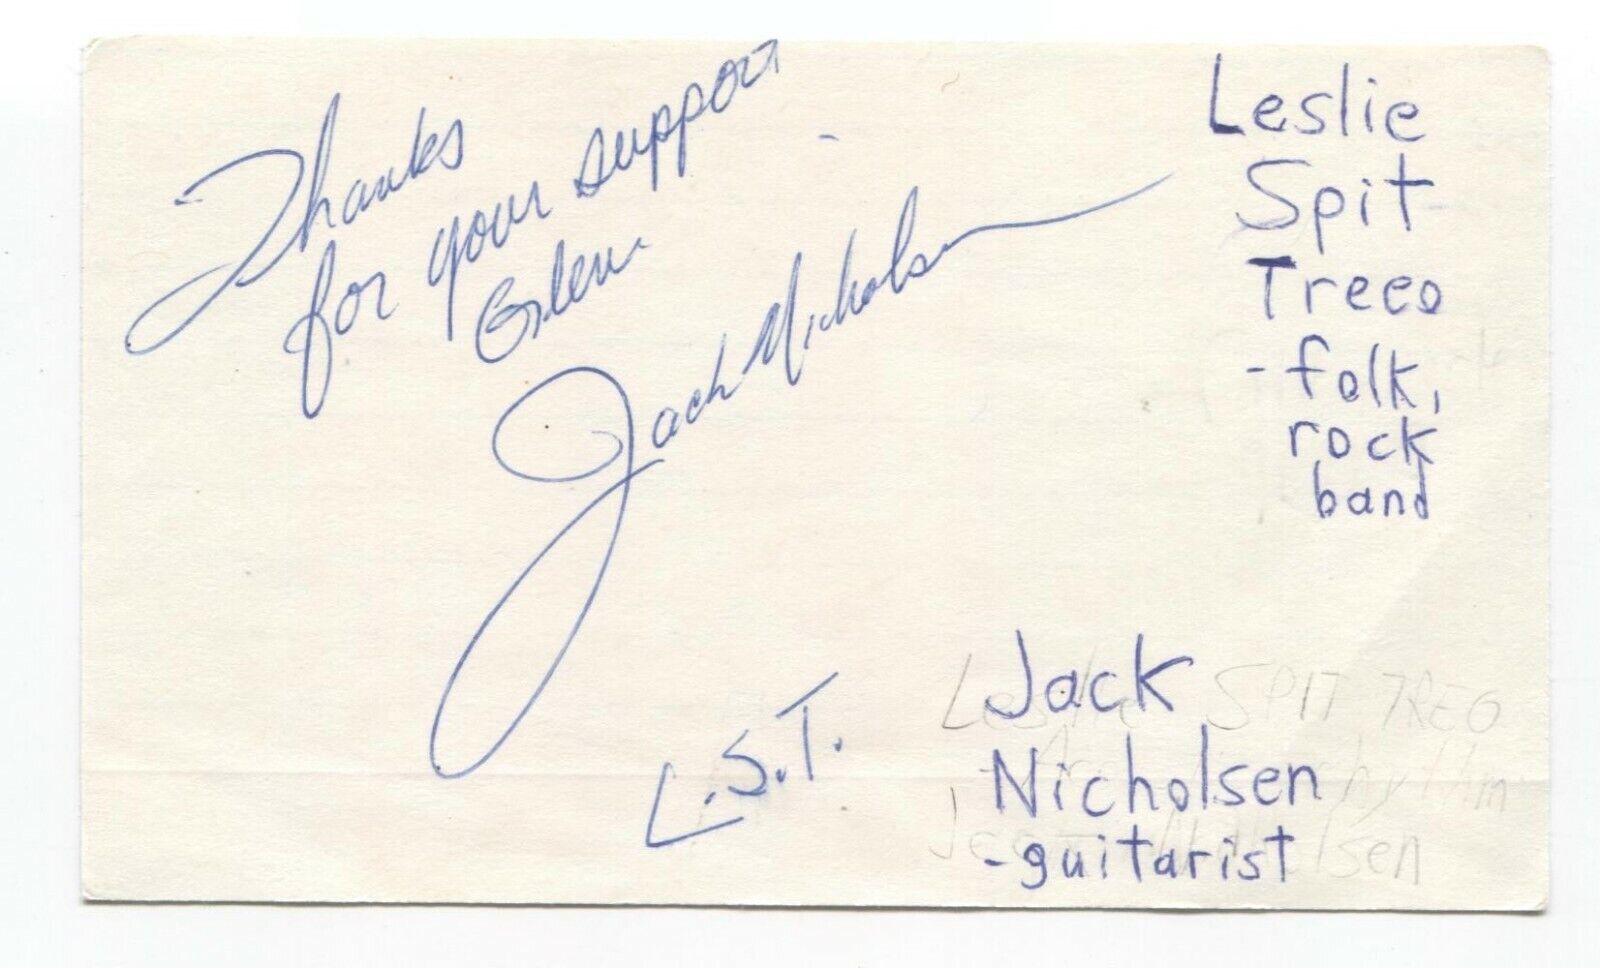 Thanks
for your support
Glenn
Jack Nicholsen
L.S.T.
Leslie
Spit
Treeo
-folk,
rock
band
Jack
Nicholsen
-guitarist
Leslie SPIT TREO